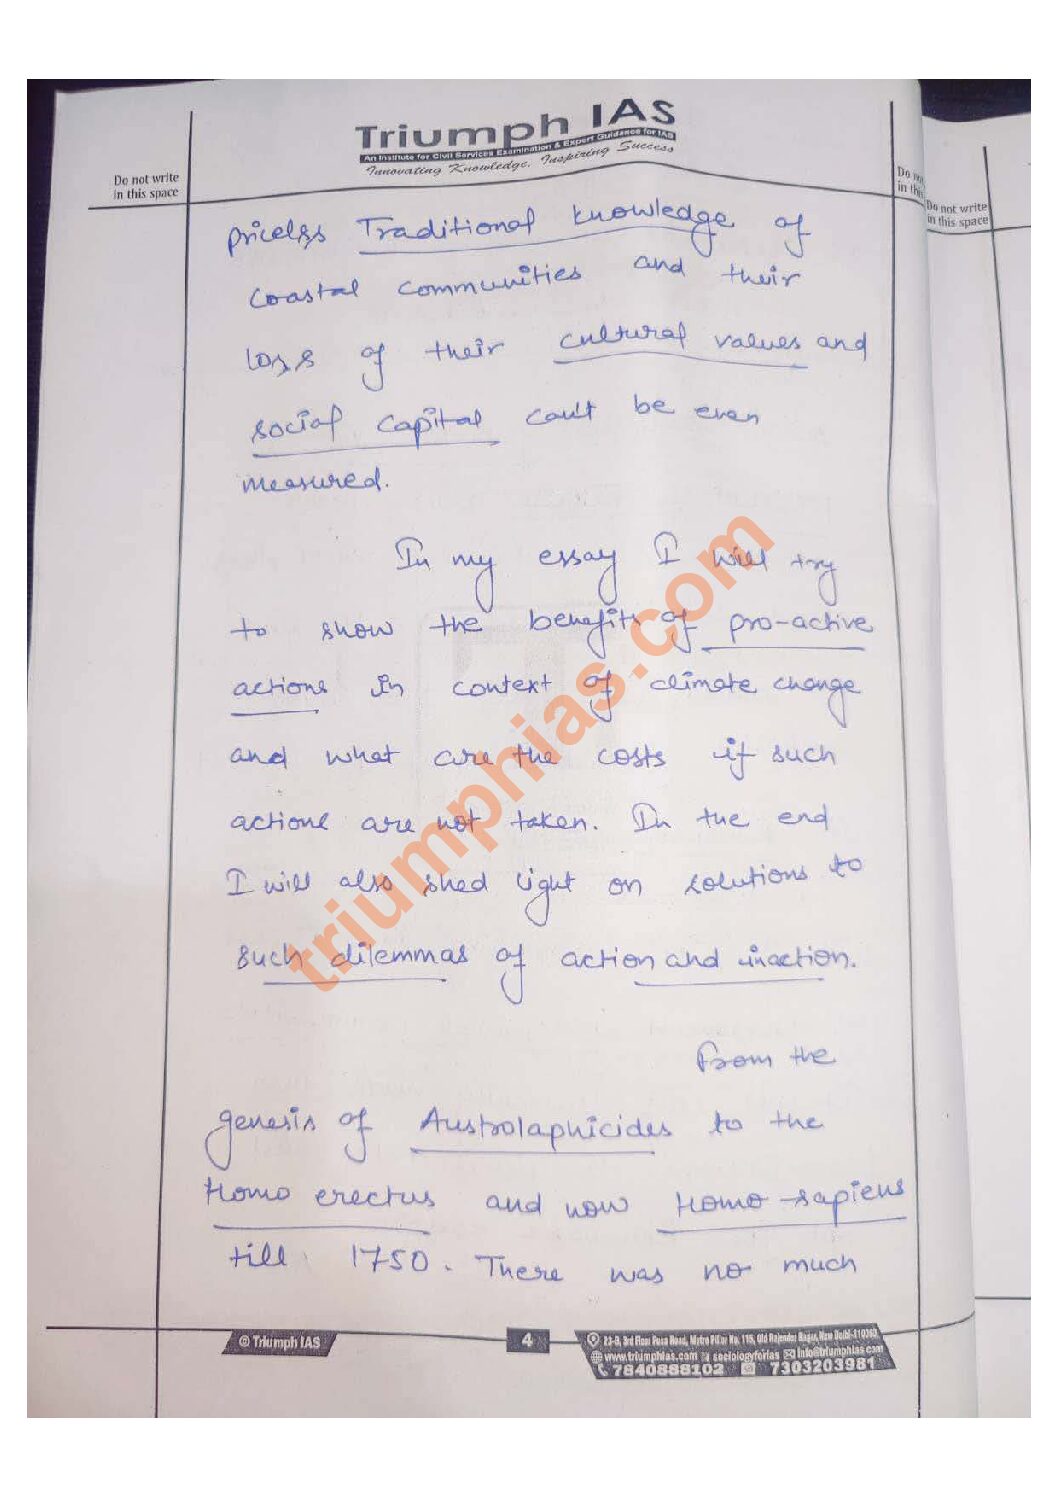 Triumph IAS
An Institute for Civil Services Examination & Expert Guidance for IAS
Innovating Knowledge, Inspiring Success
Do not write
in this space
Do not
in this
Do not write
in this space
priceless Traditional knowledge of
coastal communities and their
loss of their cultural values and
social capital can't be even
measured.
In my essay I will try
to show the benefits of pro-active
actions in context of climate change
and what are the costs if such
actions are not taken. In the end
I will also shed light on solutions to
such dilemmas of action and inaction.
From the
genesis of Austrolaphicides to the
Homo erectus and now Homo-sapiens
till 1750. There was no much
triumphias.com
@ Triumph IAS
4
23-B, 3rd Floor Pusa Road, Metro Pillar No. 115, Old Rajender Nagar, New Delhi-110060
www.triumphias.com sociologyforias info@triumphias.com
7840888102 7303203981